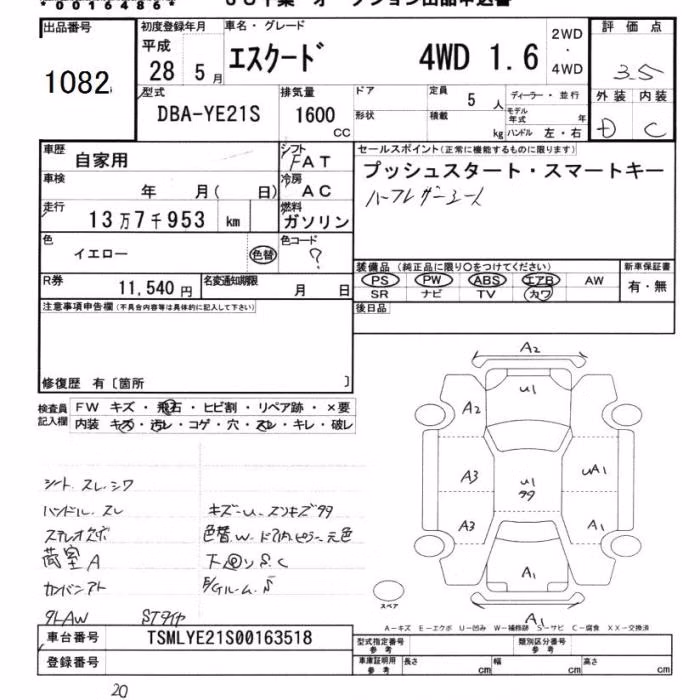 *0016486*
出品番号
1082
初度登録年月
平成
28 5 月
車名・グレード
エスクード 4WD 1.6
2WD
・
4WD
評価点
3.5
外装 内装
D C
型式
DBA-YE21S
排気量
1600
CC
ドア
形状
定員
5 人
積載
kg
ディーラー・並行
モデル年式 年
ハンドル 左・右
車歴
自家用
シフト
FAT
車検
年 月( 日)
冷房
AC
走行
13万7千953 km
燃料
ガソリン
色
イエロー
色替
色コード
?
R券
11,540円
名変通知期限
月 日
セールスポイント(正常に機能するものに限ります)
プッシュスタート・スマートキー
ハーフレザーシート
装備品 (純正品に限り〇をつけてください)
PS PW ABS エアB AW
SR ナビ TV カワ
新車保証書
有・無
後日品
注意事項申告欄(不具合内容等は具体的に記入して下さい)
修復歴 有〔箇所 〕
検査員
記入欄
FW キズ・飛石・ヒビ割・リペア跡・×要
内装 キズ・汚レ・コゲ・穴・スレ・キレ・破レ
シート、スレ、シワ
ハンドル、スレ
ステレオ欠品
荷室 A
キズ-U、スリキズ99
色替、W、ドア内、ピラー元色
下回り S.C
E/Gルーム、S
STタイヤ
A2
U1
A2
A3
U1
99
UA1
A3
A1
A1
A1
スペア
A−キズ E−エクボ U−凹み W−補修跡 S−サビ C−腐食 XX−交換済
車台番号
TSMLYE21S00163518
登録番号
型式指定番号
参考
類別区分番号
参考
車庫証明用
参考
長さ cm 幅 cm 高さ cm
20